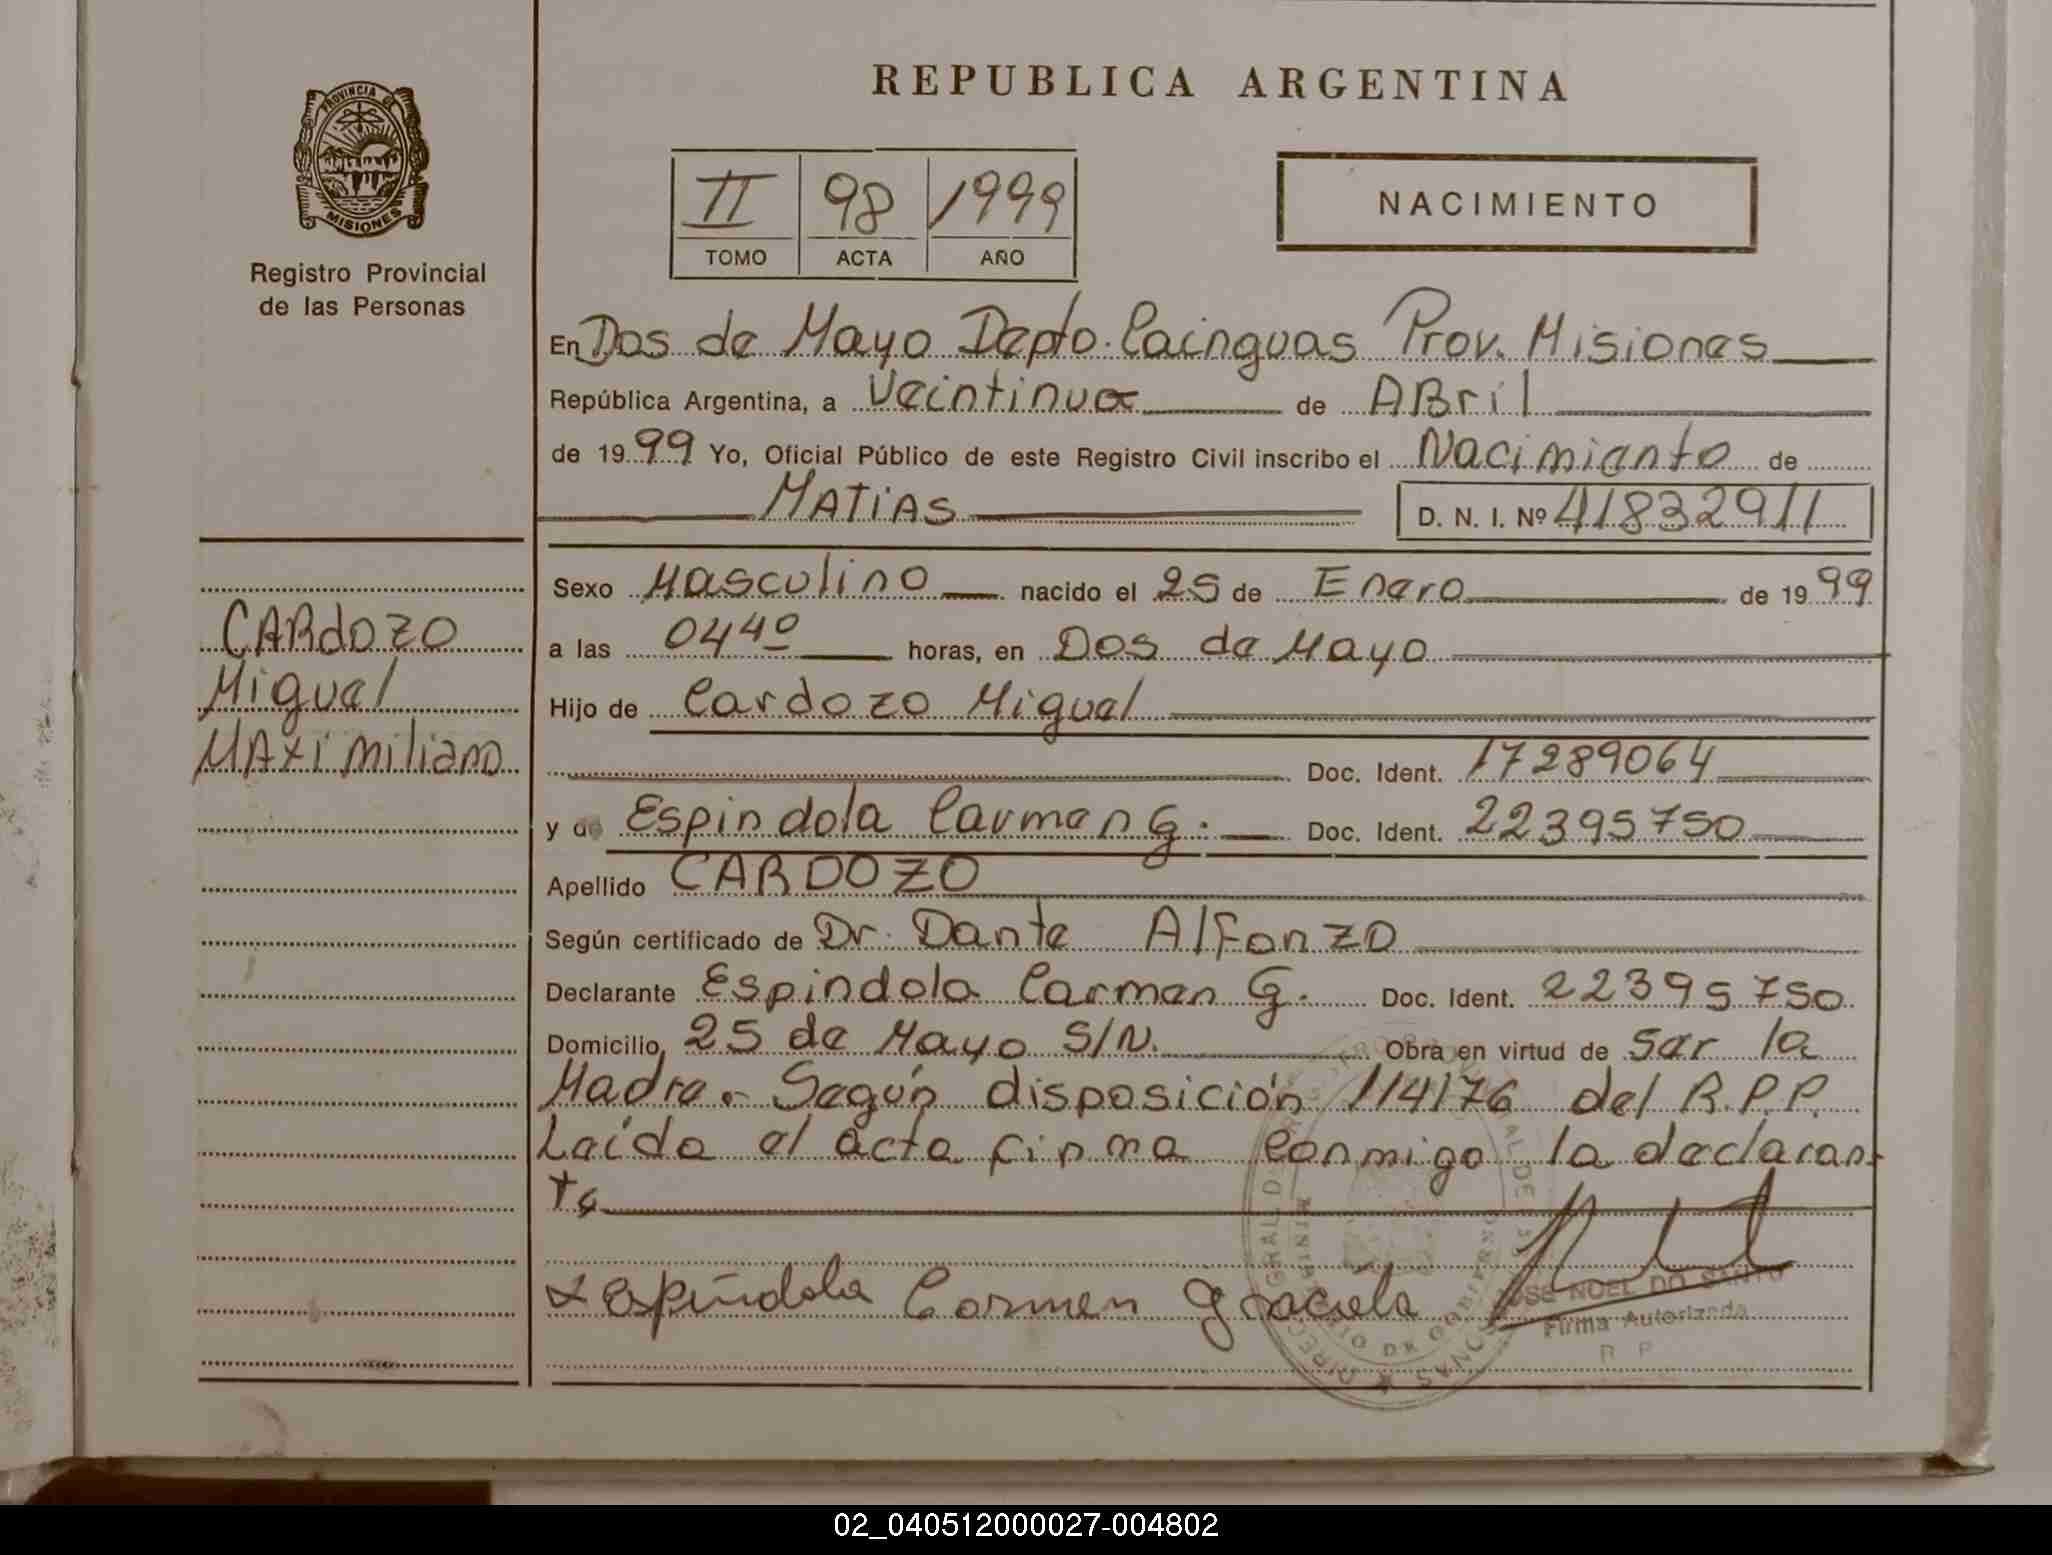 REPUBLICA ARGENTINA
PROVINCIA DE
MISIONES
Registro Provincial
de las Personas
II 98 1999
TOMO ACTA AÑO
NACIMIENTO
En Dos de Mayo Depto. Cainguas Prov. Misiones
República Argentina, a Veintinue de ABril
de 1999 Yo, Oficial Público de este Registro Civil inscribo el Nacimiento de
MATiAS D. N. I. Nº 41832911
Sexo Masculino nacido el 25 de Enero de 1999
a las 0440 horas, en Dos de Mayo
Hijo de Cardozo Miguel
Doc. Ident. 17289064
y de Espindola Carmen G. Doc. Ident. 22395750
Apellido CARDOZO
Según certificado de Dr. Dante Alfonzo
Declarante Espindola Carmen G. Doc. Ident. 22395750
Domicilio 25 de Mayo S/N. Obra en virtud de ser la
Madre.- Según disposición 114/76 del R.P.P.
Leída el acta firma conmigo la declaran
te
x Espíndola Carmen Graciela
JOSE NOEL DO SANTO
Firma Autorizada
R P
CARdOZO
Miguel
MAXimiliano
02_040512000027-004802